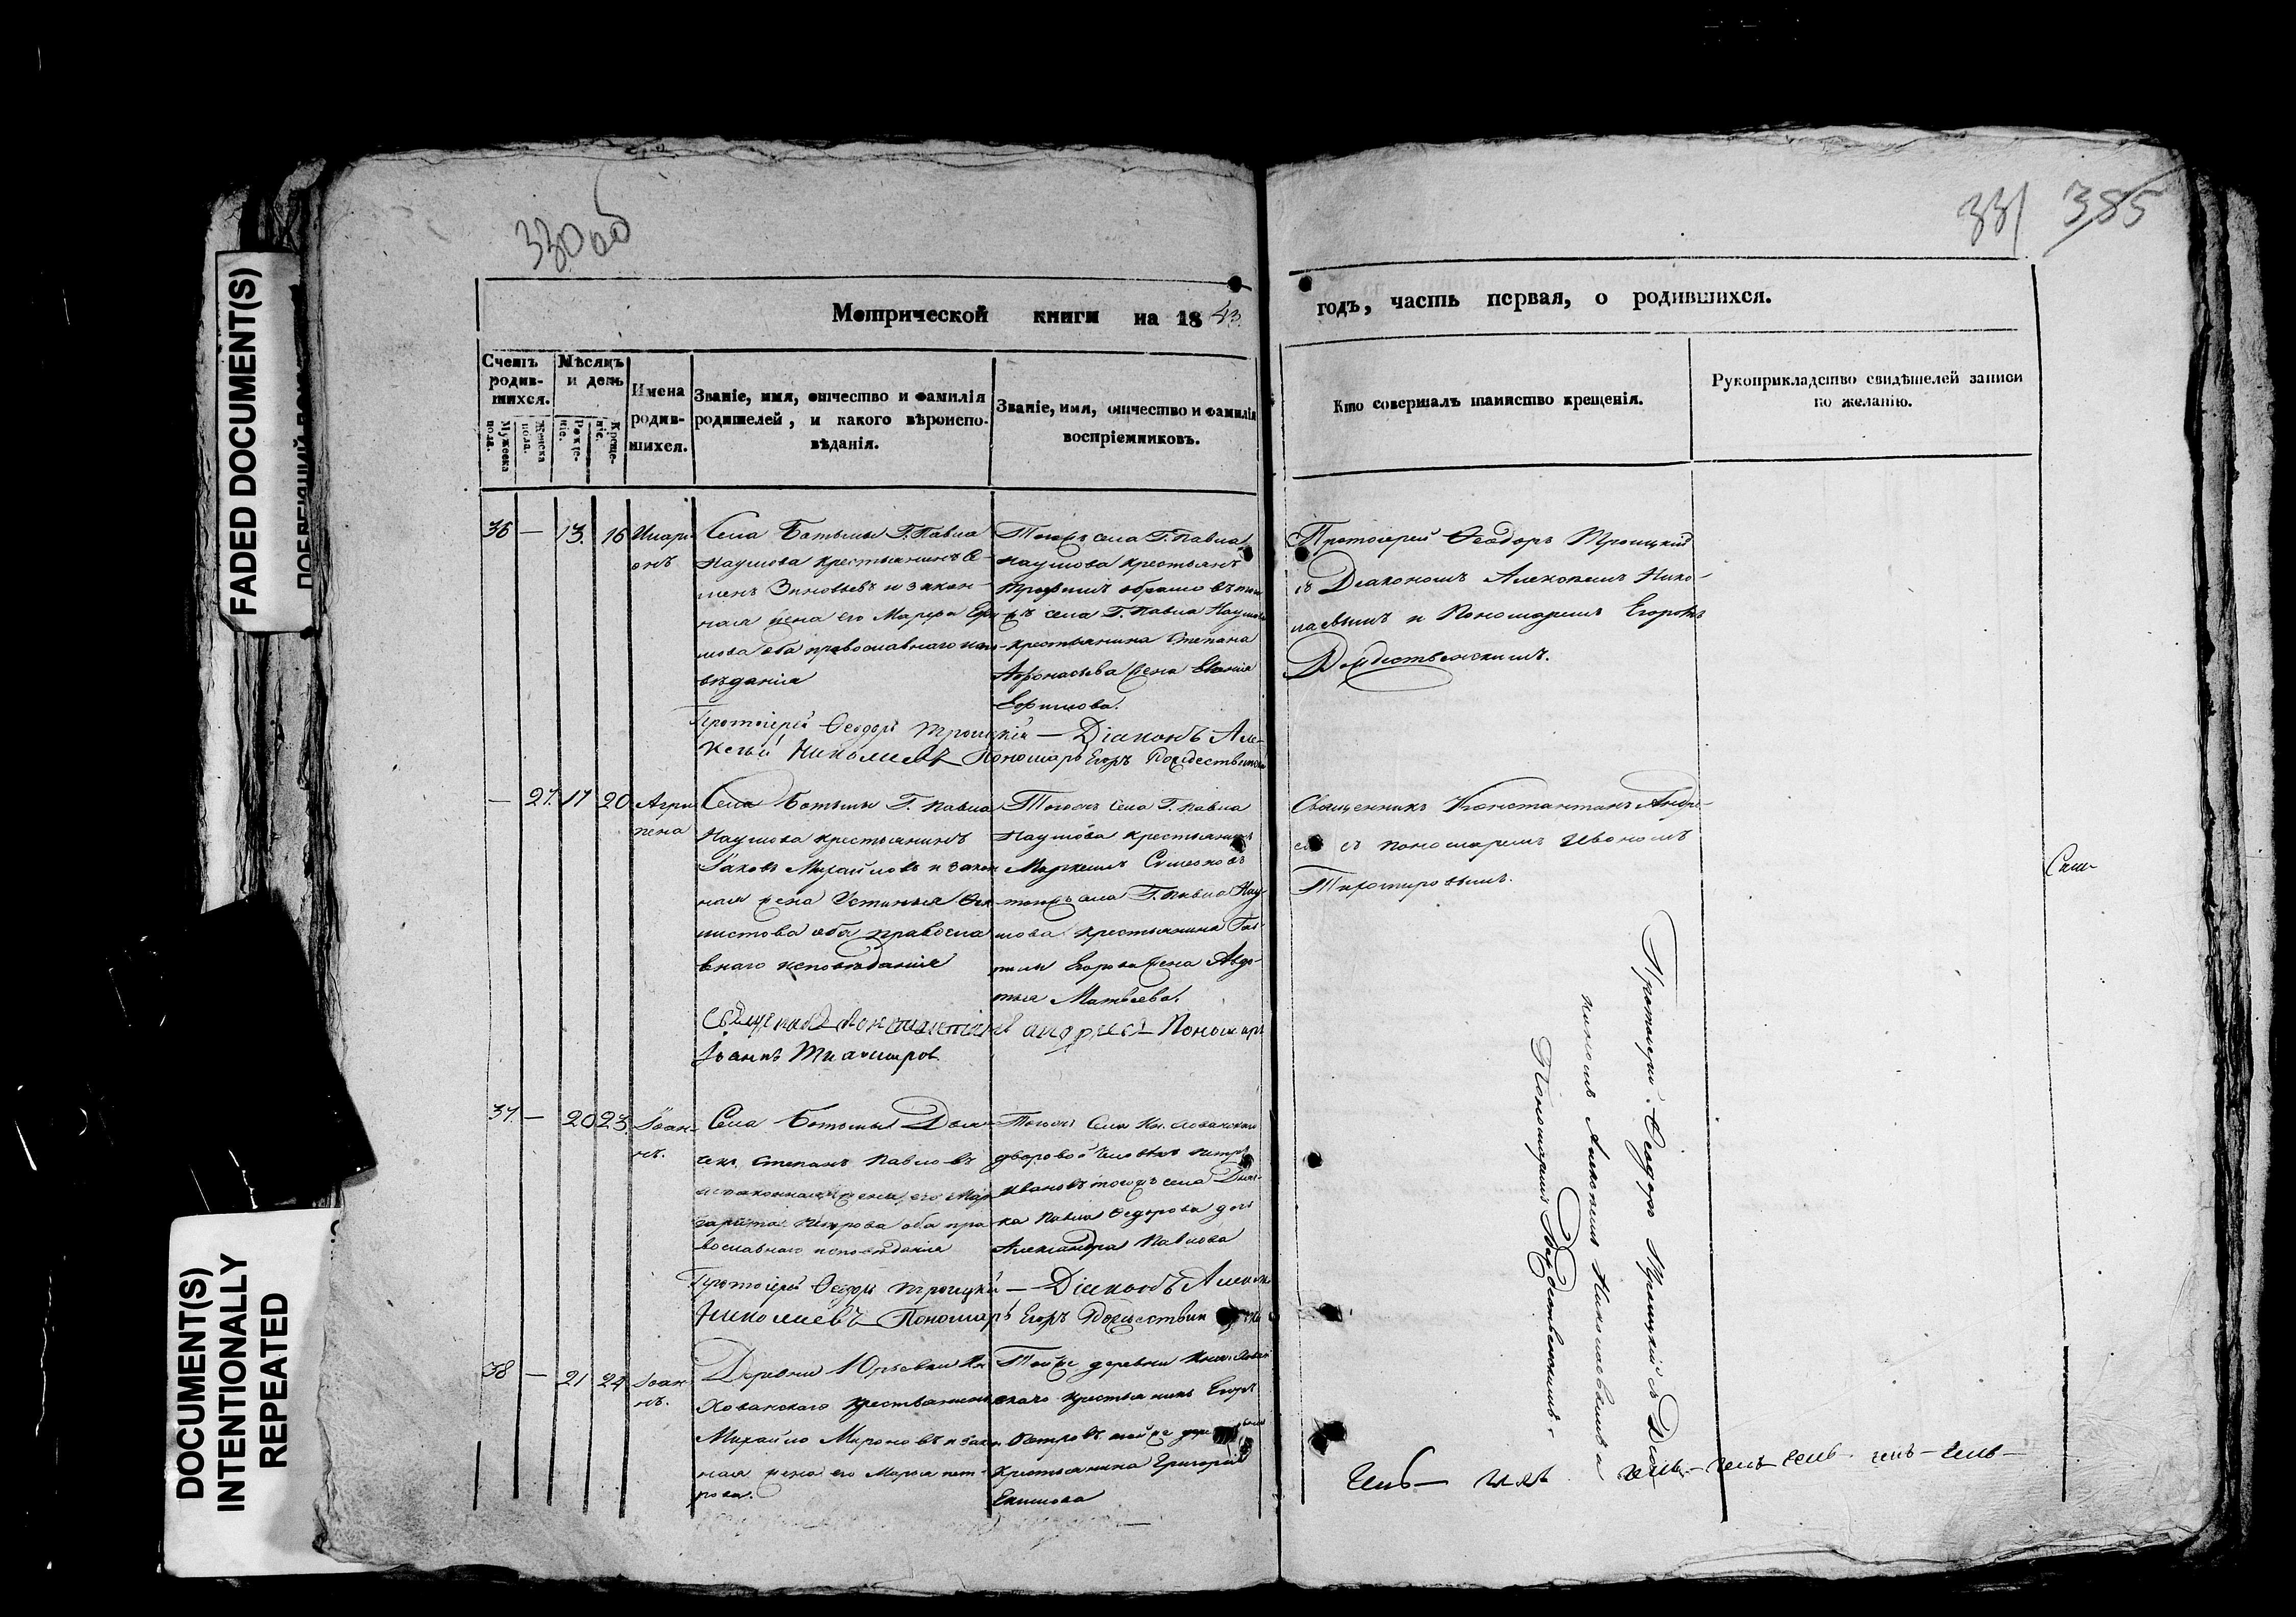 FADED DOCUMENT(S)
DOCUMENT(S)
INTENTIONALLY
REPEATED
330 об
331 385
Метрической книги на 1843
годъ, часть первая, о родившихся.
Счетъ родив-шихся.
Мужеска пола.
Женска пола.
Мѣсяцъ и день
Рожде-ніе.
Креще-ніе.
Имена родив-шихся.
Званіе, имя, отчество и фамилія родителей, и какого вѣроиспо-вѣданія.
Званіе, имя, отчество и фамилія воспріемниковъ.
Кто совершалъ таинство крещенія.
Рукоприкладство свидѣтелей записи по желанію.
36 — 13. 16 Илари-
онъ
Села Ботьмы Г. Павла
Наумова крестьянинъ Се-
менъ Зиновьевъ и закон-
ная жена его Марфа
оба православнаго испо-
вѣданія
Тогожъ села Г. Павла
Наумова крестьянъ
Трофимъ
села Г. Павла Наумова
крестьянина Степана
Афонасьева жена
Ефимова.
Протоіерей Ѳеодоръ Троицкій
съ Діакономъ Алексѣемъ Нико-
лаевымъ и Пономаремъ Егоромъ
Рождественскимъ.
Протоіерей Ѳеодоръ Троицкій — Діаконъ Але-
ксѣй Николаевъ Пономарь Егоръ Рождественскій
— 27. 17 20 Агри-
пена
Села Ботьмы Г. Павла
Наумова крестьянинъ
Іаковъ Михайловъ и закон
ная жена Устинья
оба правосла
внаго исповѣданія
Тогожъ села Г. Павла
Наумова крестьянинъ
тогожъ села Г. Павла Нау-
мова крестьянина Гав-
Егорова жена Авдо-
тья Матвѣева.
Священникъ Константинъ Андре-
евъ съ пономаремъ Иваномъ
Тихомировымъ.
Священникъ Константинъ Андреевъ Пономарь
Іоаннъ Тихомировъ
37. — 20 23. Іоан-
нъ.
Села Ботьмы Дья-
чекъ Степанъ Павловъ
и законная жена его Мар
гарита Петрова оба пра
вославнаго исповѣданія
Тогожъ села Кн. Хованскаго
дворовой человѣкъ Петръ
Ивановъ тогожъ села Дьяч-
ка Павла Ѳедорова дочь
Александра Павлова
Протоіерей Ѳеодоръ Троицкій съ Діа-
кономъ Алексѣемъ Николаевымъ и
Пономаремъ Рождественскимъ.
Протоіерей Ѳеодоръ Троицкій — Діаконъ Алексѣй
Николаевъ Пономарь Егоръ Рождественскій
38 — 21 24 Іоан-
нъ.
Деревни Юрьевки Кн.
Хованскаго крестьянинъ
Михайло Мироновъ и закон
ная жена его Марья Пет-
рова.
Тойже деревни Княз. Хован
скаго крестьянинъ Егоръ
Петровъ тойже
крестьянина Григорія